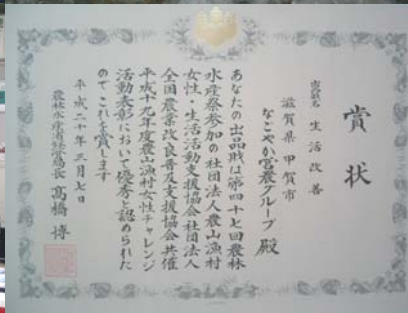 賞状
出品財名 生活改善
滋賀県甲賀市
なごやか営農グループ 殿
あなたの出品財は第四十七回農林
水産祭参加の社団法人農山漁村
女性・生活活動支援協会社団法人
全国農業改良普及支援協会共催
平成十九年度農山漁村女性チャレンジ
活動表彰において優秀と認められた
のでこれを賞します
平成二十年三月七日
農林水産省経営局長 高橋 博